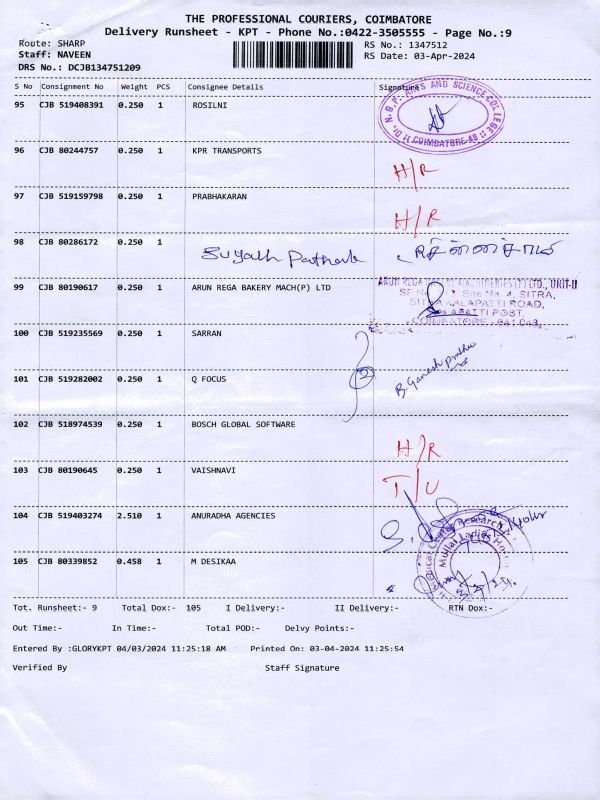 THE PROFESSIONAL COURIERS, COIMBATORE
Delivery Runsheet - KPT - Phone No.:0422-3505555 - Page No.:9
Route: SHARP RS No.: 1347512
Staff: NAVEEN RS Date: 03-Apr-2024
DRS No.: DCJB134751209
S No Consignment No Weight PCS Consignee Details Signature
95 CJB 519408391 0.250 1 ROSILNI
Dr. N.G.P. ARTS AND SCIENCE COLLEGE COIMBATORE-48
96 CJB 80244757 0.250 1 KPR TRANSPORTS H/R
97 CJB 519159798 0.250 1 PRABHAKARAN H/R
98 CJB 80286172 0.250 1
99 CJB 80190617 0.250 1 ARUN REGA BAKERY MACH(P) LTD
ARUN REGA LTD., UNIT-II
SITRA,
KALAPATTI ROAD,
POST,
COIMBATORE - 641 048
100 CJB 519235569 0.250 1 SARRAN
101 CJB 519282002 0.250 1 Q FOCUS B. Ganesh Prabhu
102 CJB 518974539 0.250 1 BOSCH GLOBAL SOFTWARE H/R
103 CJB 80190645 0.250 1 VAISHNAVI T/U
104 CJB 519403274 2.510 1 ANURADHA AGENCIES
105 CJB 80339852 0.458 1 M DESIKAA
Tot. Runsheet:- 9 Total Dox:- 105 I Delivery:- II Delivery:- RTN Dox:-
Out Time:- In Time:- Total POD:- Delvy Points:-
Entered By :GLORYKPT 04/03/2024 11:25:18 AM Printed On: 03-04-2024 11:25:54
Verified By Staff Signature